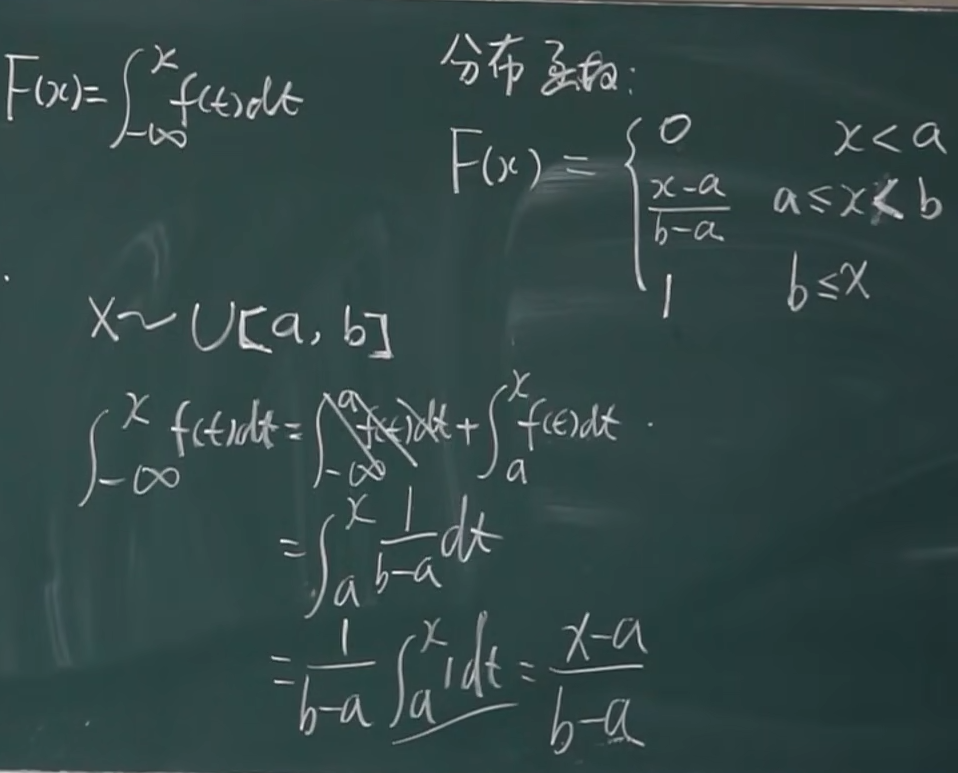 F(x)=∫_{-∞}^{x} f(t)dt
分布函数:
F(x) = { 0 x<a
x-a/b-a a≤x<b
1 b≤x
X~U[a, b]
∫_{-∞}^{x} f(t)dt = ∫_{-∞}^{a} f(t)dt + ∫_{a}^{x} f(t)dt
= ∫_{a}^{x} 1/b-a dt
= 1/b-a ∫_{a}^{x} 1dt = x-a/b-a